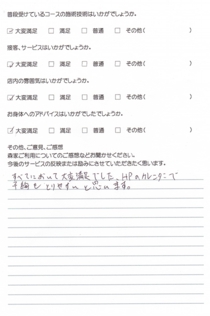 普段受けているコースの施術技術はいかがでしょうか。
☑大変満足 □満足 □普通 □その他( )
接客、サービスはいかがでしょうか。
☑大変満足 □満足 □普通 □その他( )
店内の雰囲気はいかがでしょうか。
☑大変満足 □満足 □普通 □その他( )
お身体へのアドバイスはいかがでしたでしょうか。
☑大変満足 □満足 □普通 □その他( )
その他、ご意見、ご感想
森家ご利用についてのご感想などお聞かせください。
今後のサービスの反映または励みにさせていただきたく思います。
すべてにおいて大変満足でした。HPのカレンダーで
予約もとりやすいと思います。